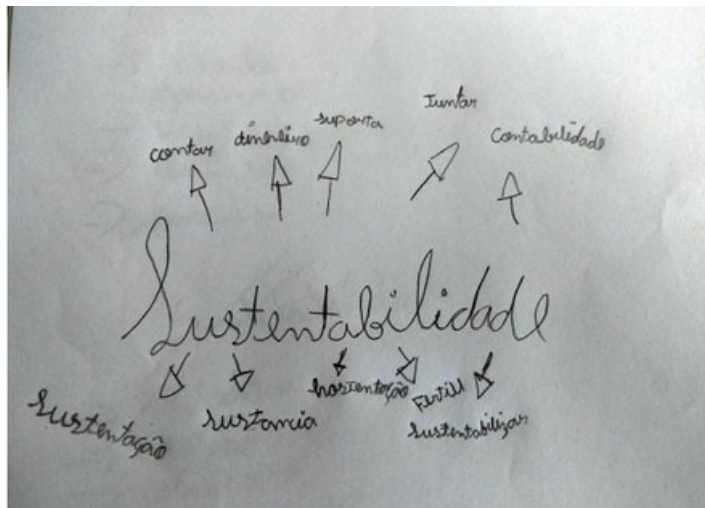 contar
dinheiro
suporta
Juntar
Contabilidade
Sustentabilidade
Sustentação
Sustancia
Fertil
Sustentabilizar